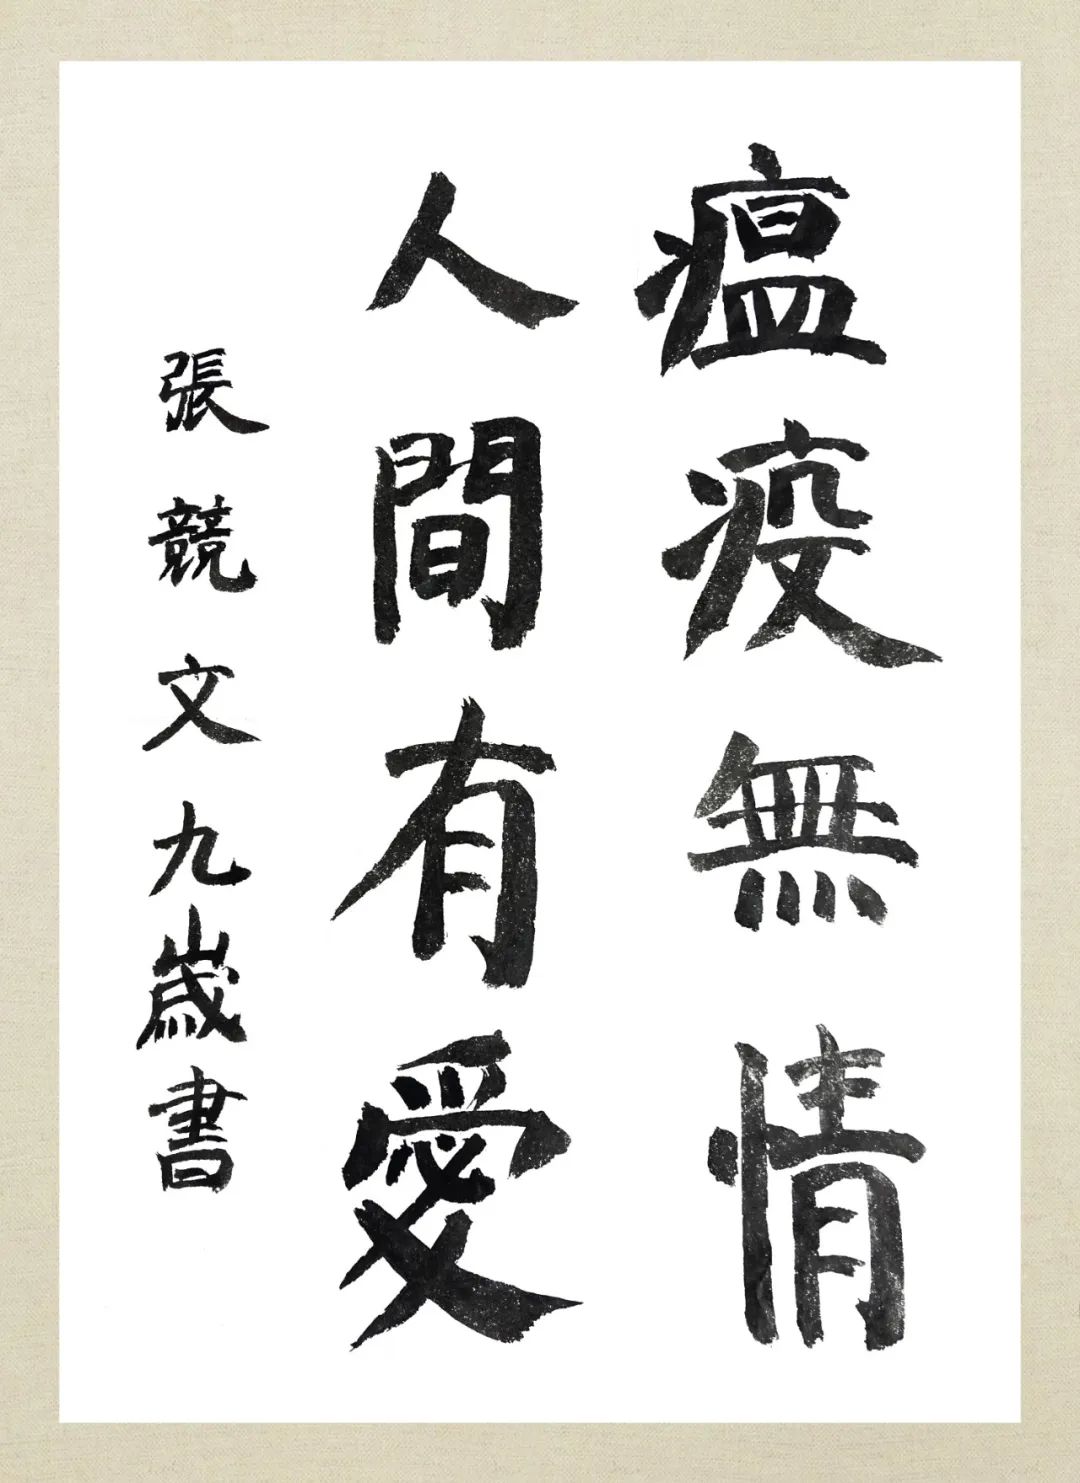 瘟疫無情
人間有愛
張競文九歲書